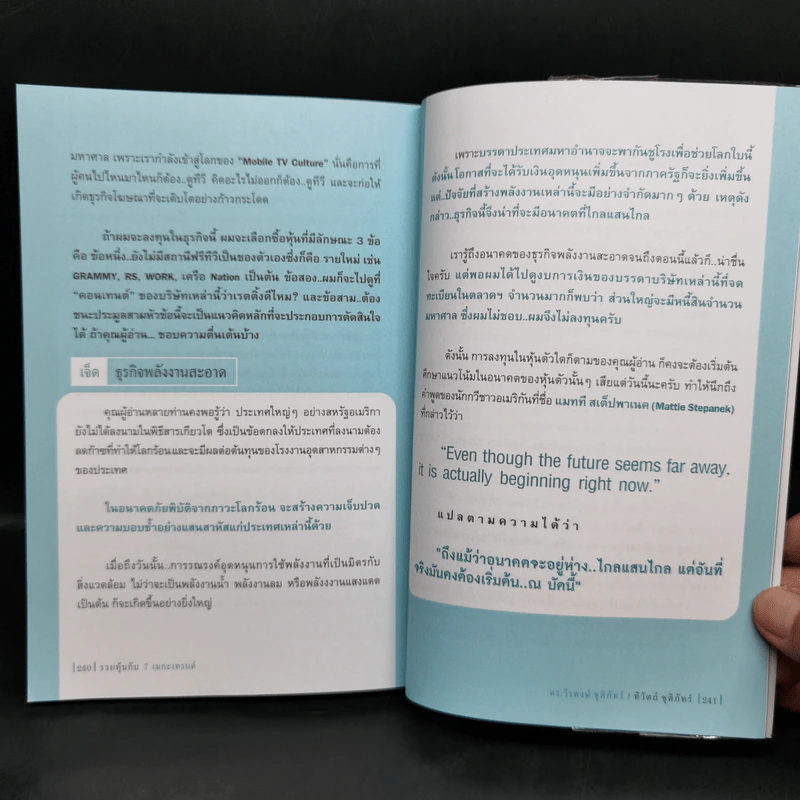 มหาศาล เพราะเรากำลังเข้าสู่โลกของ "Mobile TV Culture" นั่นคือการที่
ผู้คนไปไหนมาไหนก็ต้อง..ดูทีวี คิดอะไรไม่ออกก็ต้อง..ดูทีวี และจะก่อให้
เกิดธุรกิจโฆษณาที่จะเติบโตอย่างก้าวกระโดด
ถ้าผมจะลงทุนในธุรกิจนี้ ผมจะเลือกซื้อหุ้นที่มีลักษณะ 3 ข้อ
คือ ข้อหนึ่ง..ยังไม่มีสถานีฟรีทีวีเป็นของตัวเองซึ่งก็คือ รายใหม่ เช่น
GRAMMY, RS, WORK, เครือ Nation เป็นต้น ข้อสอง..ผมก็จะไปดูที่
"คอนเทนต์" ของบริษัทเหล่านี้ว่าเรตติ้งดีไหม? และข้อสาม..ต้อง
ชนะประมูลสามหัวข้อนี้จะเป็นแนวคิดหลักที่จะประกอบการตัดสินใจ
ได้ ถ้าคุณผู้อ่าน... ชอบความตื่นเต้นบ้าง
เจ็ด ธุรกิจพลังงานสะอาด
คุณผู้อ่านหลายท่านคงพอรู้ว่า ประเทศใหญ่ๆ อย่างสหรัฐอเมริกา
ยังไม่ได้ลงนามในพิธีสารเกียวโต ซึ่งเป็นข้อตกลงให้ประเทศที่ลงนามต้อง
ลดก๊าซที่ทำให้โลกร้อนและจะมีผลต่อต้นทุนของโรงงานอุตสาหกรรมต่างๆ
ของประเทศ
ในอนาคตภัยพิบัติจากภาวะโลกร้อน จะสร้างความเจ็บปวด
และความบอบช้ำอย่างแสนสาหัสแก่ประเทศเหล่านี้ด้วย
เมื่อถึงวันนั้น..การรณรงค์อุดหนุนการใช้พลังงานที่เป็นมิตรกับ
สิ่งแวดล้อม ไม่ว่าจะเป็นพลังงานน้ำ พลังงานลม หรือพลังงานแสงแดด
เป็นต้น ก็จะเกิดขึ้นอย่างยิ่งใหญ่
|240| รวยหุ้นกับ 7 เมกะเทรนด์
เพราะบรรดาประเทศมหาอำนาจจะพากันชูโรงเพื่อช่วยโลกใบนี้
ดังนั้น โอกาสที่จะได้รับเงินอุดหนุนเพิ่มขึ้นจากภาครัฐก็จะยิ่งเพิ่มขึ้น
แต่..ปัจจัยที่สร้างพลังงานเหล่านี้จะมีอย่างจำกัดมากๆ ด้วย เหตุดัง
กล่าว..ธุรกิจนี้จึงน่าที่จะมีอนาคตที่ไกลแสนไกล
เรารู้ถึงอนาคตของธุรกิจพลังงานสะอาดจนถึงตอนนี้แล้วก็..น่าชื่น
ใจครับ แต่พอผมได้ไปดูงบการเงินของบรรดาบริษัทเหล่านี้ที่จด
ทะเบียนในตลาดฯ จำนวนมากก็พบว่า ส่วนใหญ่จะมีหนี้สินจำนวน
มหาศาล ซึ่งผมไม่ชอบ..ผมจึงไม่ลงทุนครับ
ดังนั้น การลงทุนในหุ้นตัวใดก็ตามของคุณผู้อ่าน ก็คงจะต้องเริ่มต้น
ศึกษาแนวโน้มในอนาคตของหุ้นตัวนั้นๆ เสียแต่วันนี้นะครับ ทำให้นึกถึง
คำพูดของนักกวีชาวอเมริกันที่ชื่อ แมททิ สเต็ปพาเนค (Mattie Stepanek)
ที่กล่าวไว้ว่า
"Even though the future seems far away,
it is actually beginning right now."
แปลตามความได้ว่า
"ถึงแม้ว่าอนาคตจะอยู่ห่าง..ไกลแสนไกล แต่อันที่
จริงมันคงต้องเริ่มต้น..ณ บัดนี้"
ดร.วีรพงษ์ ชุติภัทร์ / ทิวัตถ์ ชุติภัทร์ |241|